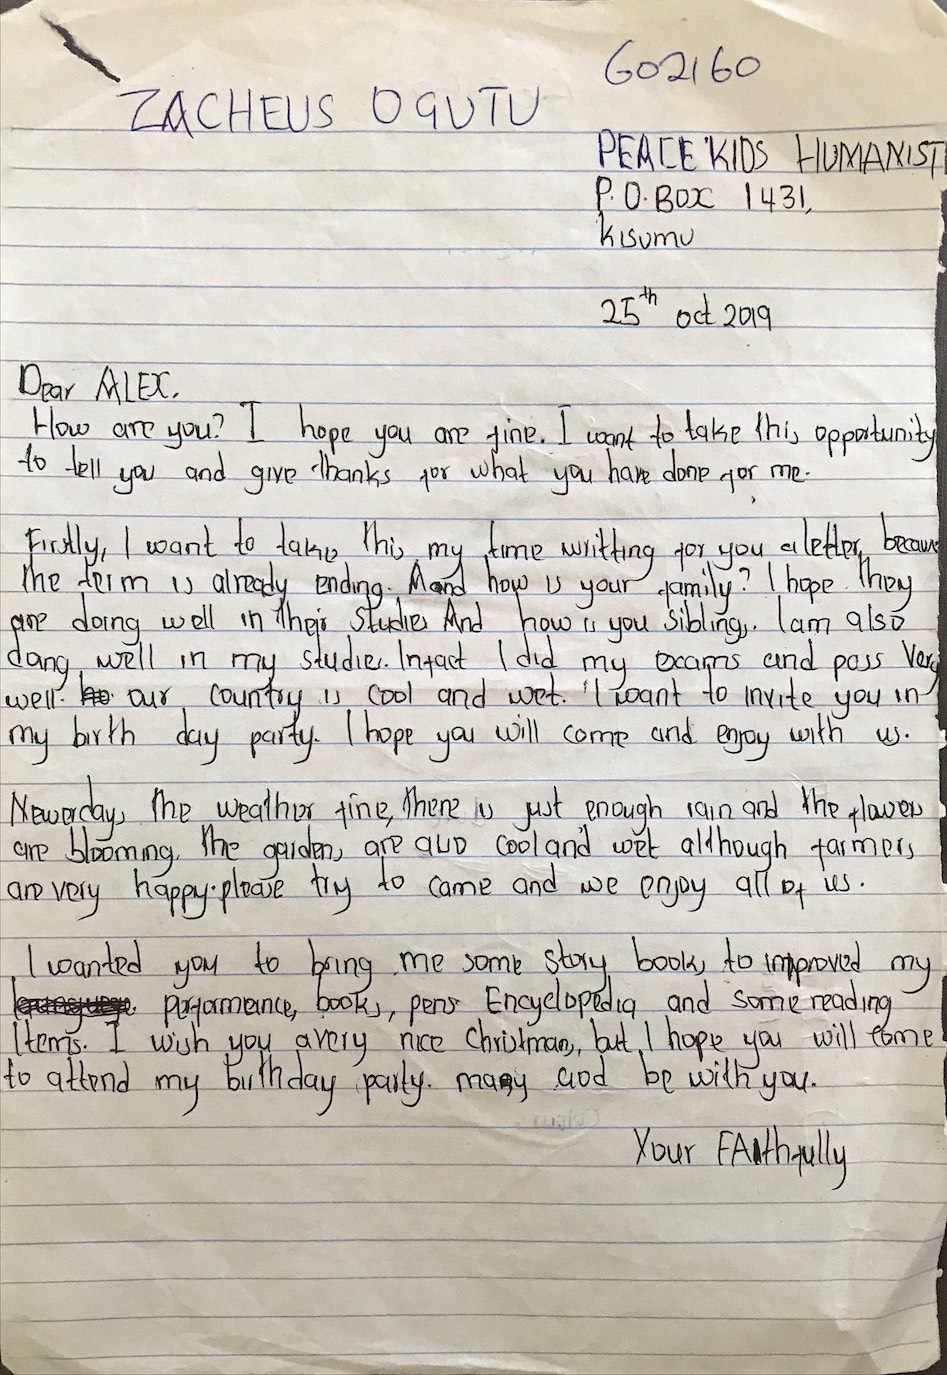 GO2160
ZACHEUS OGUTU
PEACE KIDS HUMANIST
P.O.BOX 1431,
KISUMU
25th oct 2019
Dear ALEX.
How are you? I hope you are fine. I want to take this opportunity
to tell you and give thanks for what you have done for me.
Firstly, I want to take this my time writting for you a letter because
the term is already ending. And how is your family? I hope they
are doing well in their Studies And how is you sibling. I am also
doing well in my studies. Infact I did my exams and pass Very
well. our country is cool and wet. I want to invite you in
my birth day party. I hope you will come and enjoy with us.
Newerdays the weather fine, there is just enough rain and the flowes
are blooming. the gardens are also cool and wet although farmers
are very happy. please try to came and we enjoy all of us.
I wanted you to bring me some story books to improved my
performance, books, pens Encyclopedia and some reading
Items. I wish you a very nice Christmas, but I hope you will come
to attend my birthday party. many God be with you.
Your FAithfully